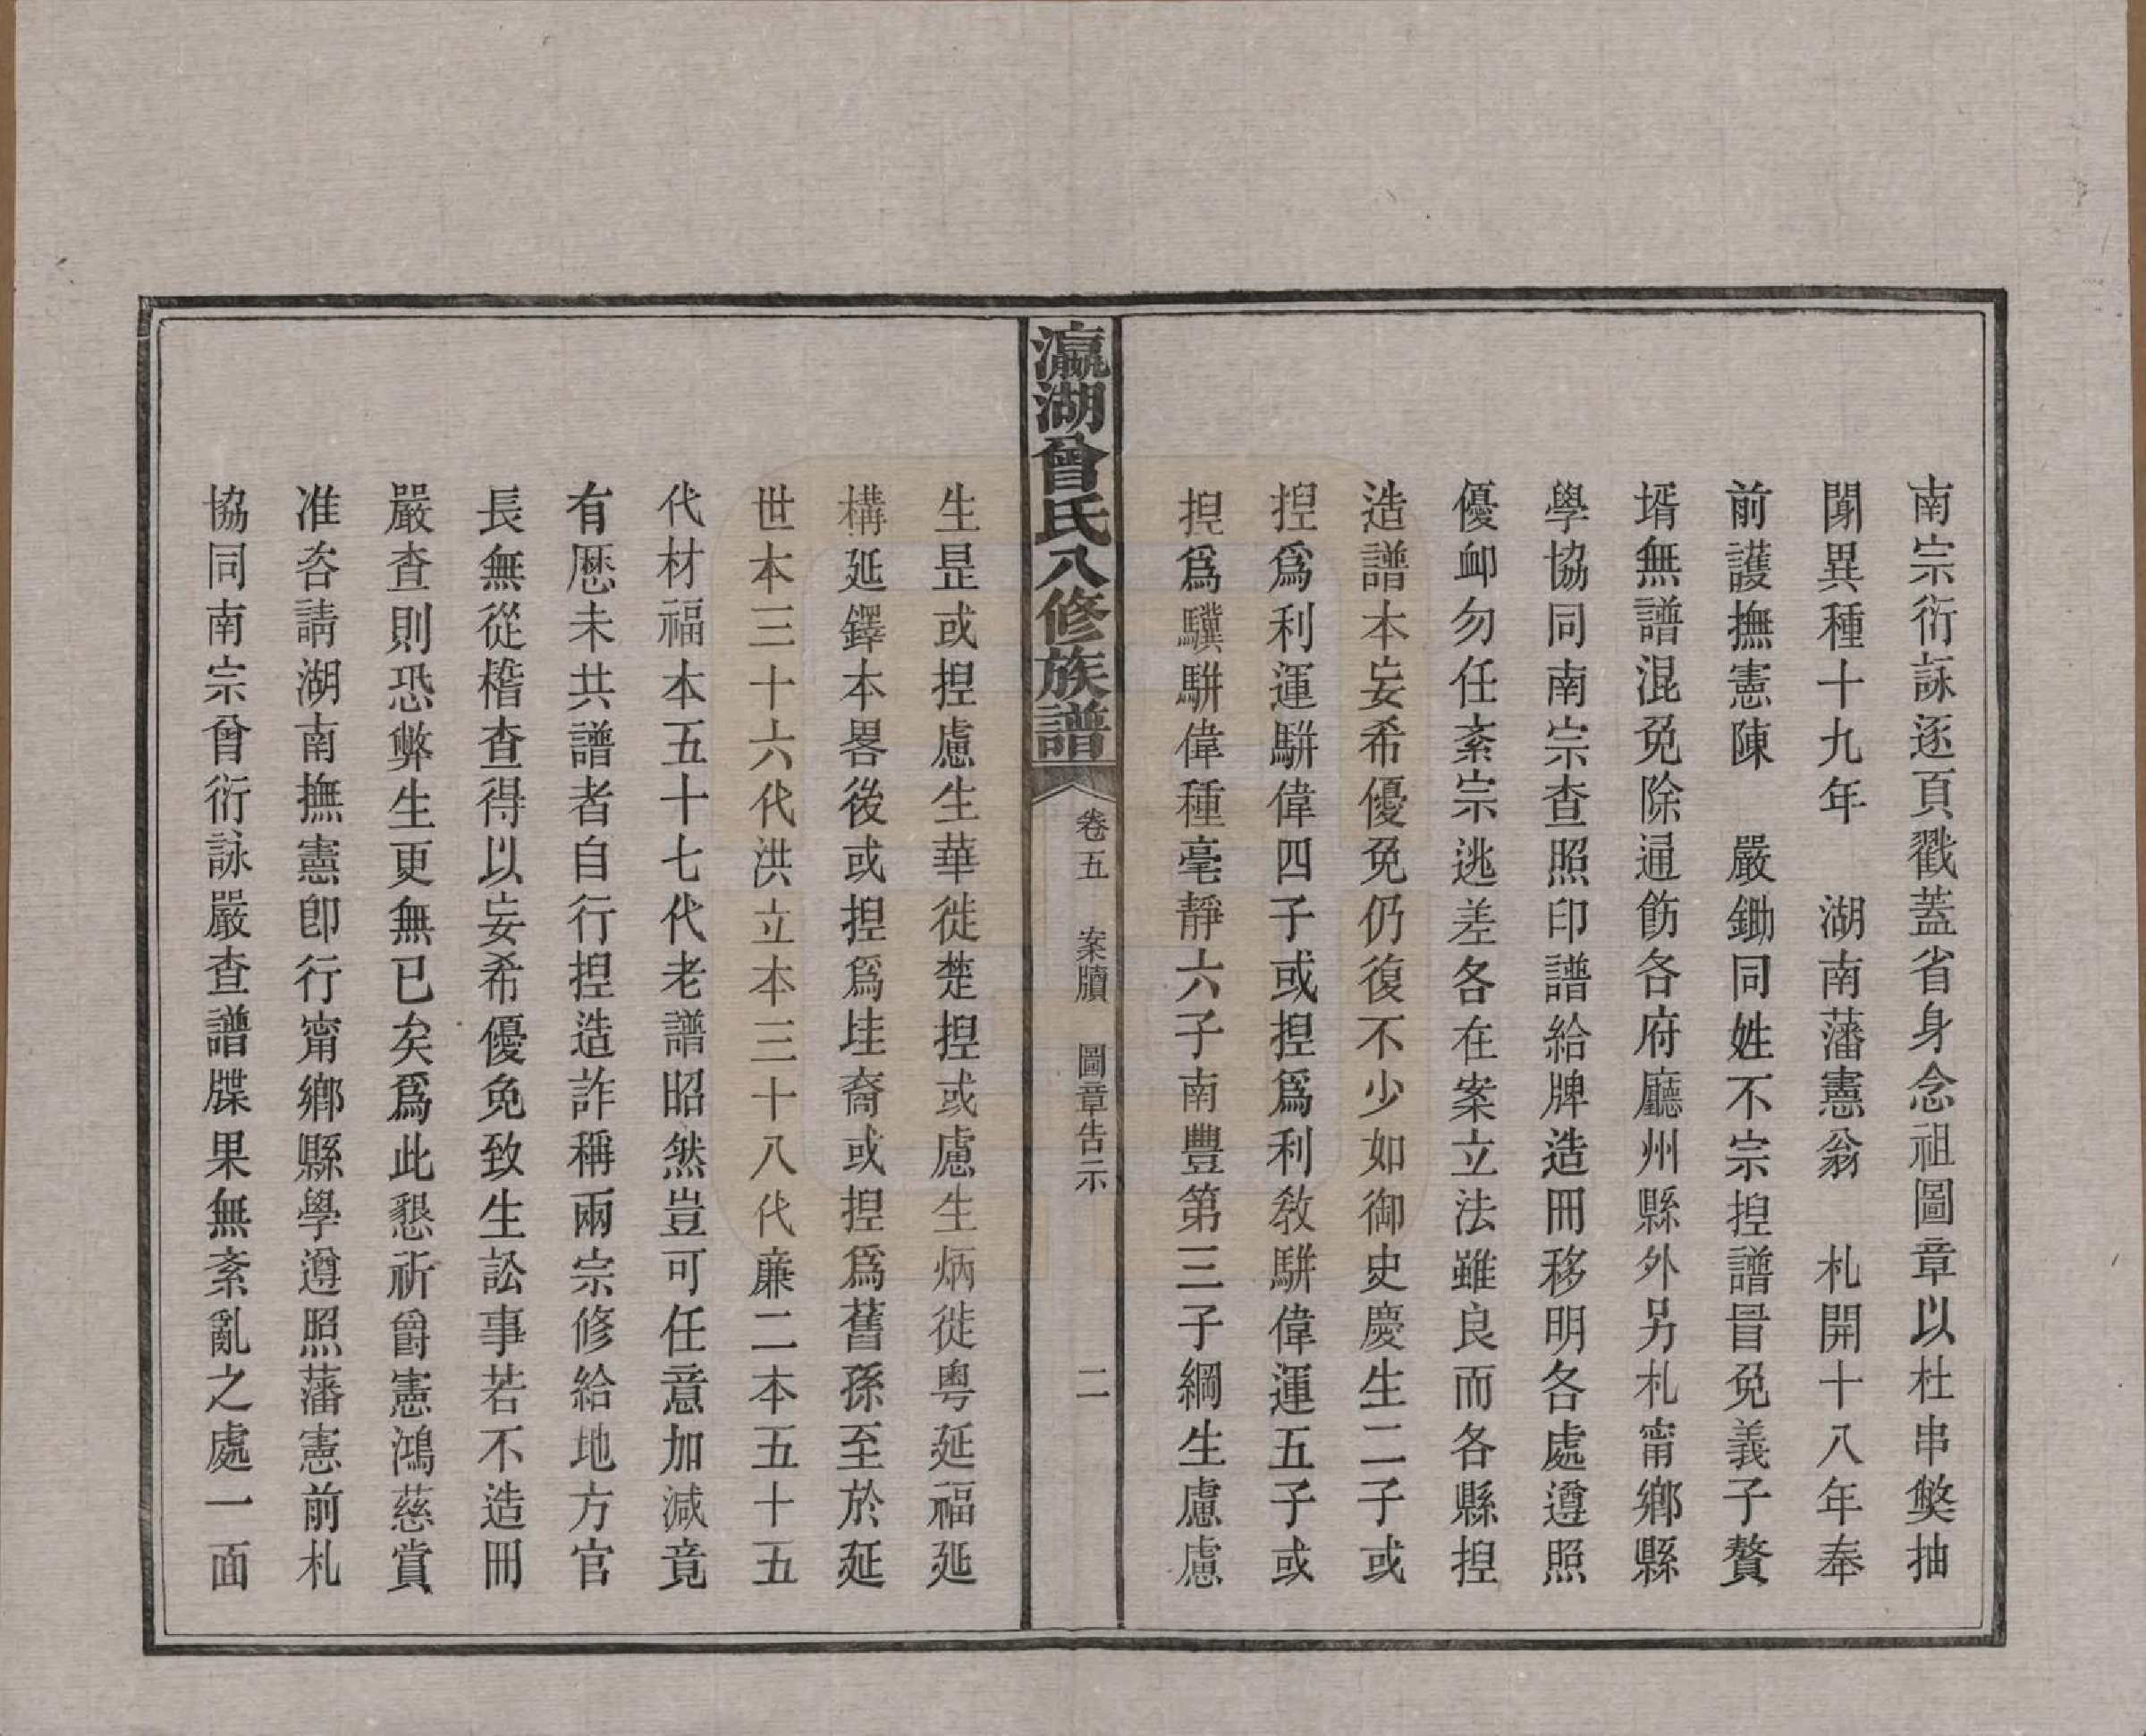 南宗衍詠逐頁戳蓋省身念祖圖章以杜串弊抽
聞異種十九年　湖南藩憲翁　札開十八年奉
前護撫憲陳　嚴鋤同姓不宗捏譜冒免義子贅
壻無譜混免除通飭各府廳州縣外另札甯鄉縣
學協同南宗查照印譜給牌造冊移明各處遵照
優卹勿任紊宗逃差各在案立法雖良而各縣捏
造譜本妄希優免仍復不少如御史慶生二子或
捏爲利運駢偉四子或捏爲利教駢偉運五子或
捏爲驥駢偉種毫靜六子南豐第三子綱生慮慮
瀛湖曾氏八修族譜　卷五　案牘　圖章告示　二
生昆或捏慮生華徙楚捏或慮生炳徙粵延福延
構延鐸本畧後或捏爲㻏裔或捏爲舊孫至於延
世本三十六代洪立本三十八代廉二本五十五
代材福本五十七代老譜昭然豈可任意加減竟
有歷未共譜者自行捏造詐稱兩宗修給地方官
長無從稽查得以妄希優免致生訟事若不造冊
嚴查則恐弊生更無已矣爲此懇祈爵憲鴻慈賞
准咨請湖南撫憲卽行甯鄉縣學遵照藩憲前札
協同南宗曾衍詠嚴查譜牒果無紊亂之處一面